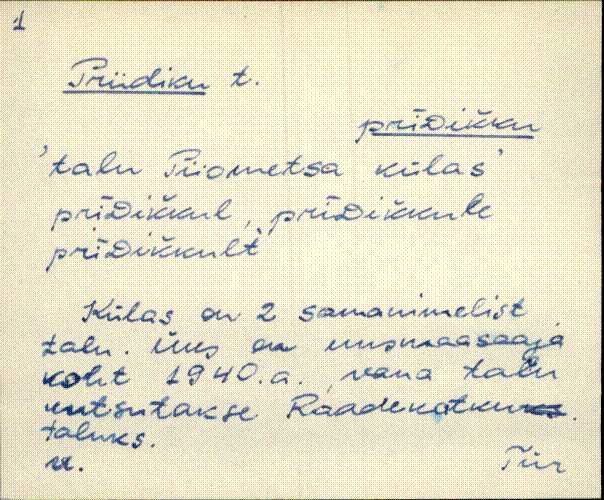 1
Priidiku t.
prīDikku
'talu Piiometsa külas'
prīDikkul, prīDikkule
prīDikkult
Külas on 2 samanimelist
talu. Üks on uusmaasaaja
koht 1940.a., vana talu
kutsutakse Raadekatku
taluks.
Tür